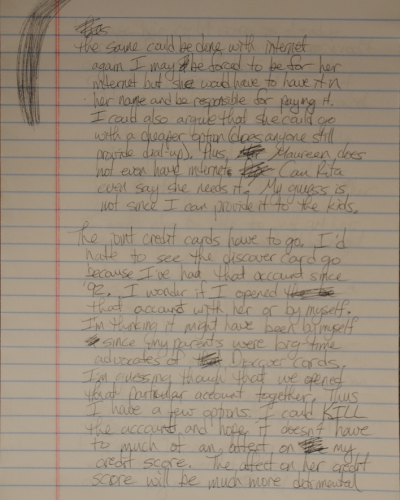 the same could be done with internet
again I may be forced to be for her
internet but she would have to have it in
her name and be responsible for paying it.
I could also argue that she could go
with a cheaper option (does anyone still
provide dial-up). Plus, Maureen does
not even have internet. Can Rita
even say she needs it? My guess is
not since I can provide it to the kids.
The joint credit cards have to go. I'd
hate to see the discover card go
because I've had that account since
'92. I wonder if I opened
that account with her or by myself.
I'm thinking it might have been by myself
since my parents were big-time
advocates of Discover cards.
I'm guessing though that we opened
that particular account together. Thus
I have a few options. I could KILL
the account and hope it doesn't have
to much of an affect on my
credit score. The affect on her credit
score will be much more detrimental